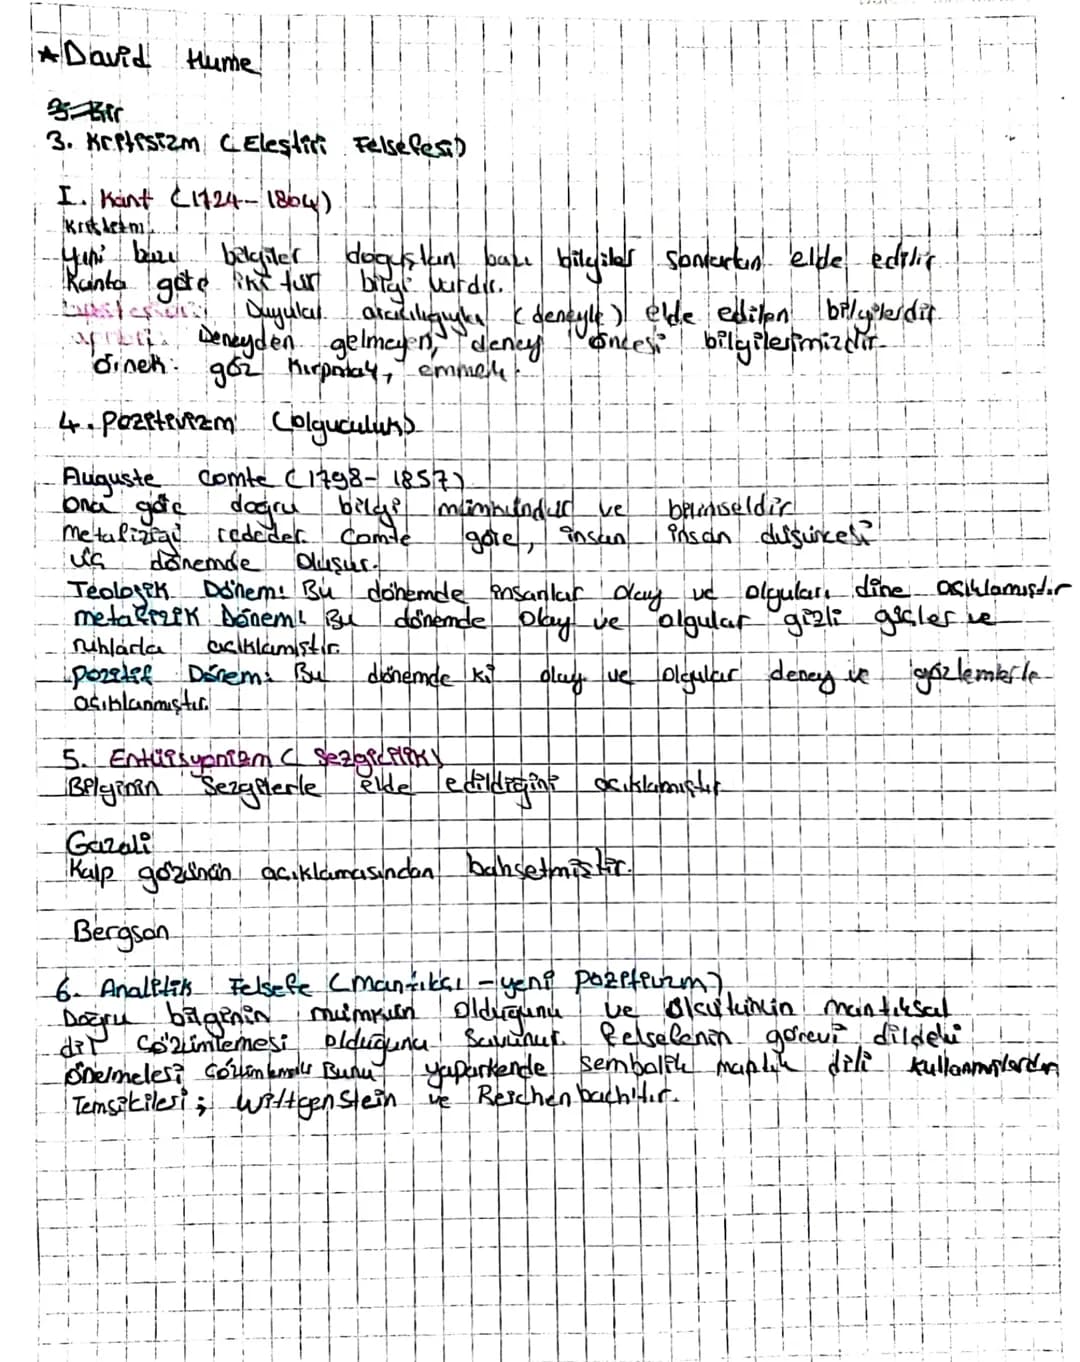 ★ David Hume
3. Kritisizm (Eleştiri Felsefesi)
I. Kant (1724-1804)
Yani bazı bilgiler doğuştan bazı bilgiler sonradan elde edilir
Kanta göre iki tür bilgi vardır.
Duyular aracılığıyla (deneyle) elde edilen bilgilerdir.
Deneyden gelmeyen, deney öncesi bilgilerimizdir.
Örnek: göz kırpmak, emmek.
4. Pozitivizm (Olguculuk)
Auguste Comte (1798-1857)
Ona göre doğru bilgi mümkündür ve bilimseldir
Metafiziği reddeder Comte göre, insan insan düşüncesi
üç dönemde oluşur.
Teolojik Dönem: Bu dönemde insanlar olay ve olguları dine açıklamıştır
metafizik Dönem: Bu dönemde olay ve olgular gizli güçler ve
ruhlarla açıklamıştır
pozitif Dönem: Bu dönemde ki olay ve olgular deney ve gözlemlerle
açıklanmıştır.
5. Entüisyonizm (Sezgicilik)
Bilginin Sezgilerle elde edildiğini açıklamıştır
Gazali
Kalp gözünün açıklamasından bahsetmiştir.
Bergson
6. Analitik Felsefe (mantıkçı - yeni pozitivizm)
Doğru bilginin mümkün olduğunu ve ölçütünün mantıksal
dil çözümlemesi olduğunu savunur. Felsefenin görevi dildeki
önermeleri Bunu yaparkende sembolik mantık dili kullanmışlardır
Temsilcileri; Wittgenstein ve Reichenbach'tır.